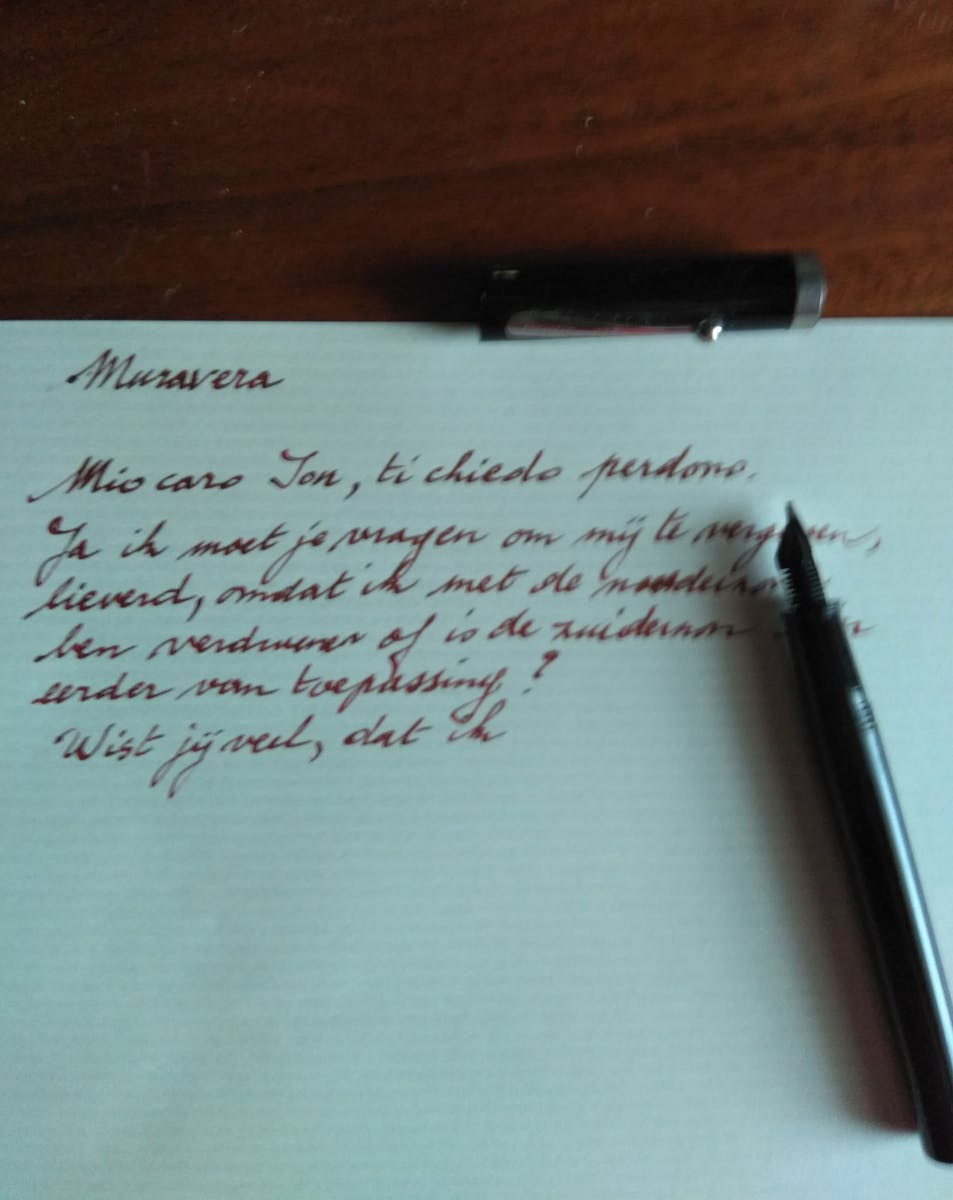 Muravera
Mio caro Jon, ti chiedo perdono.
Ja ik moet je vragen om mij te vergeven,
lieverd, omdat ik met de
ben verdwenen of is de zuiderzon
eerder van toepassing?
Wist jij veel, dat ik